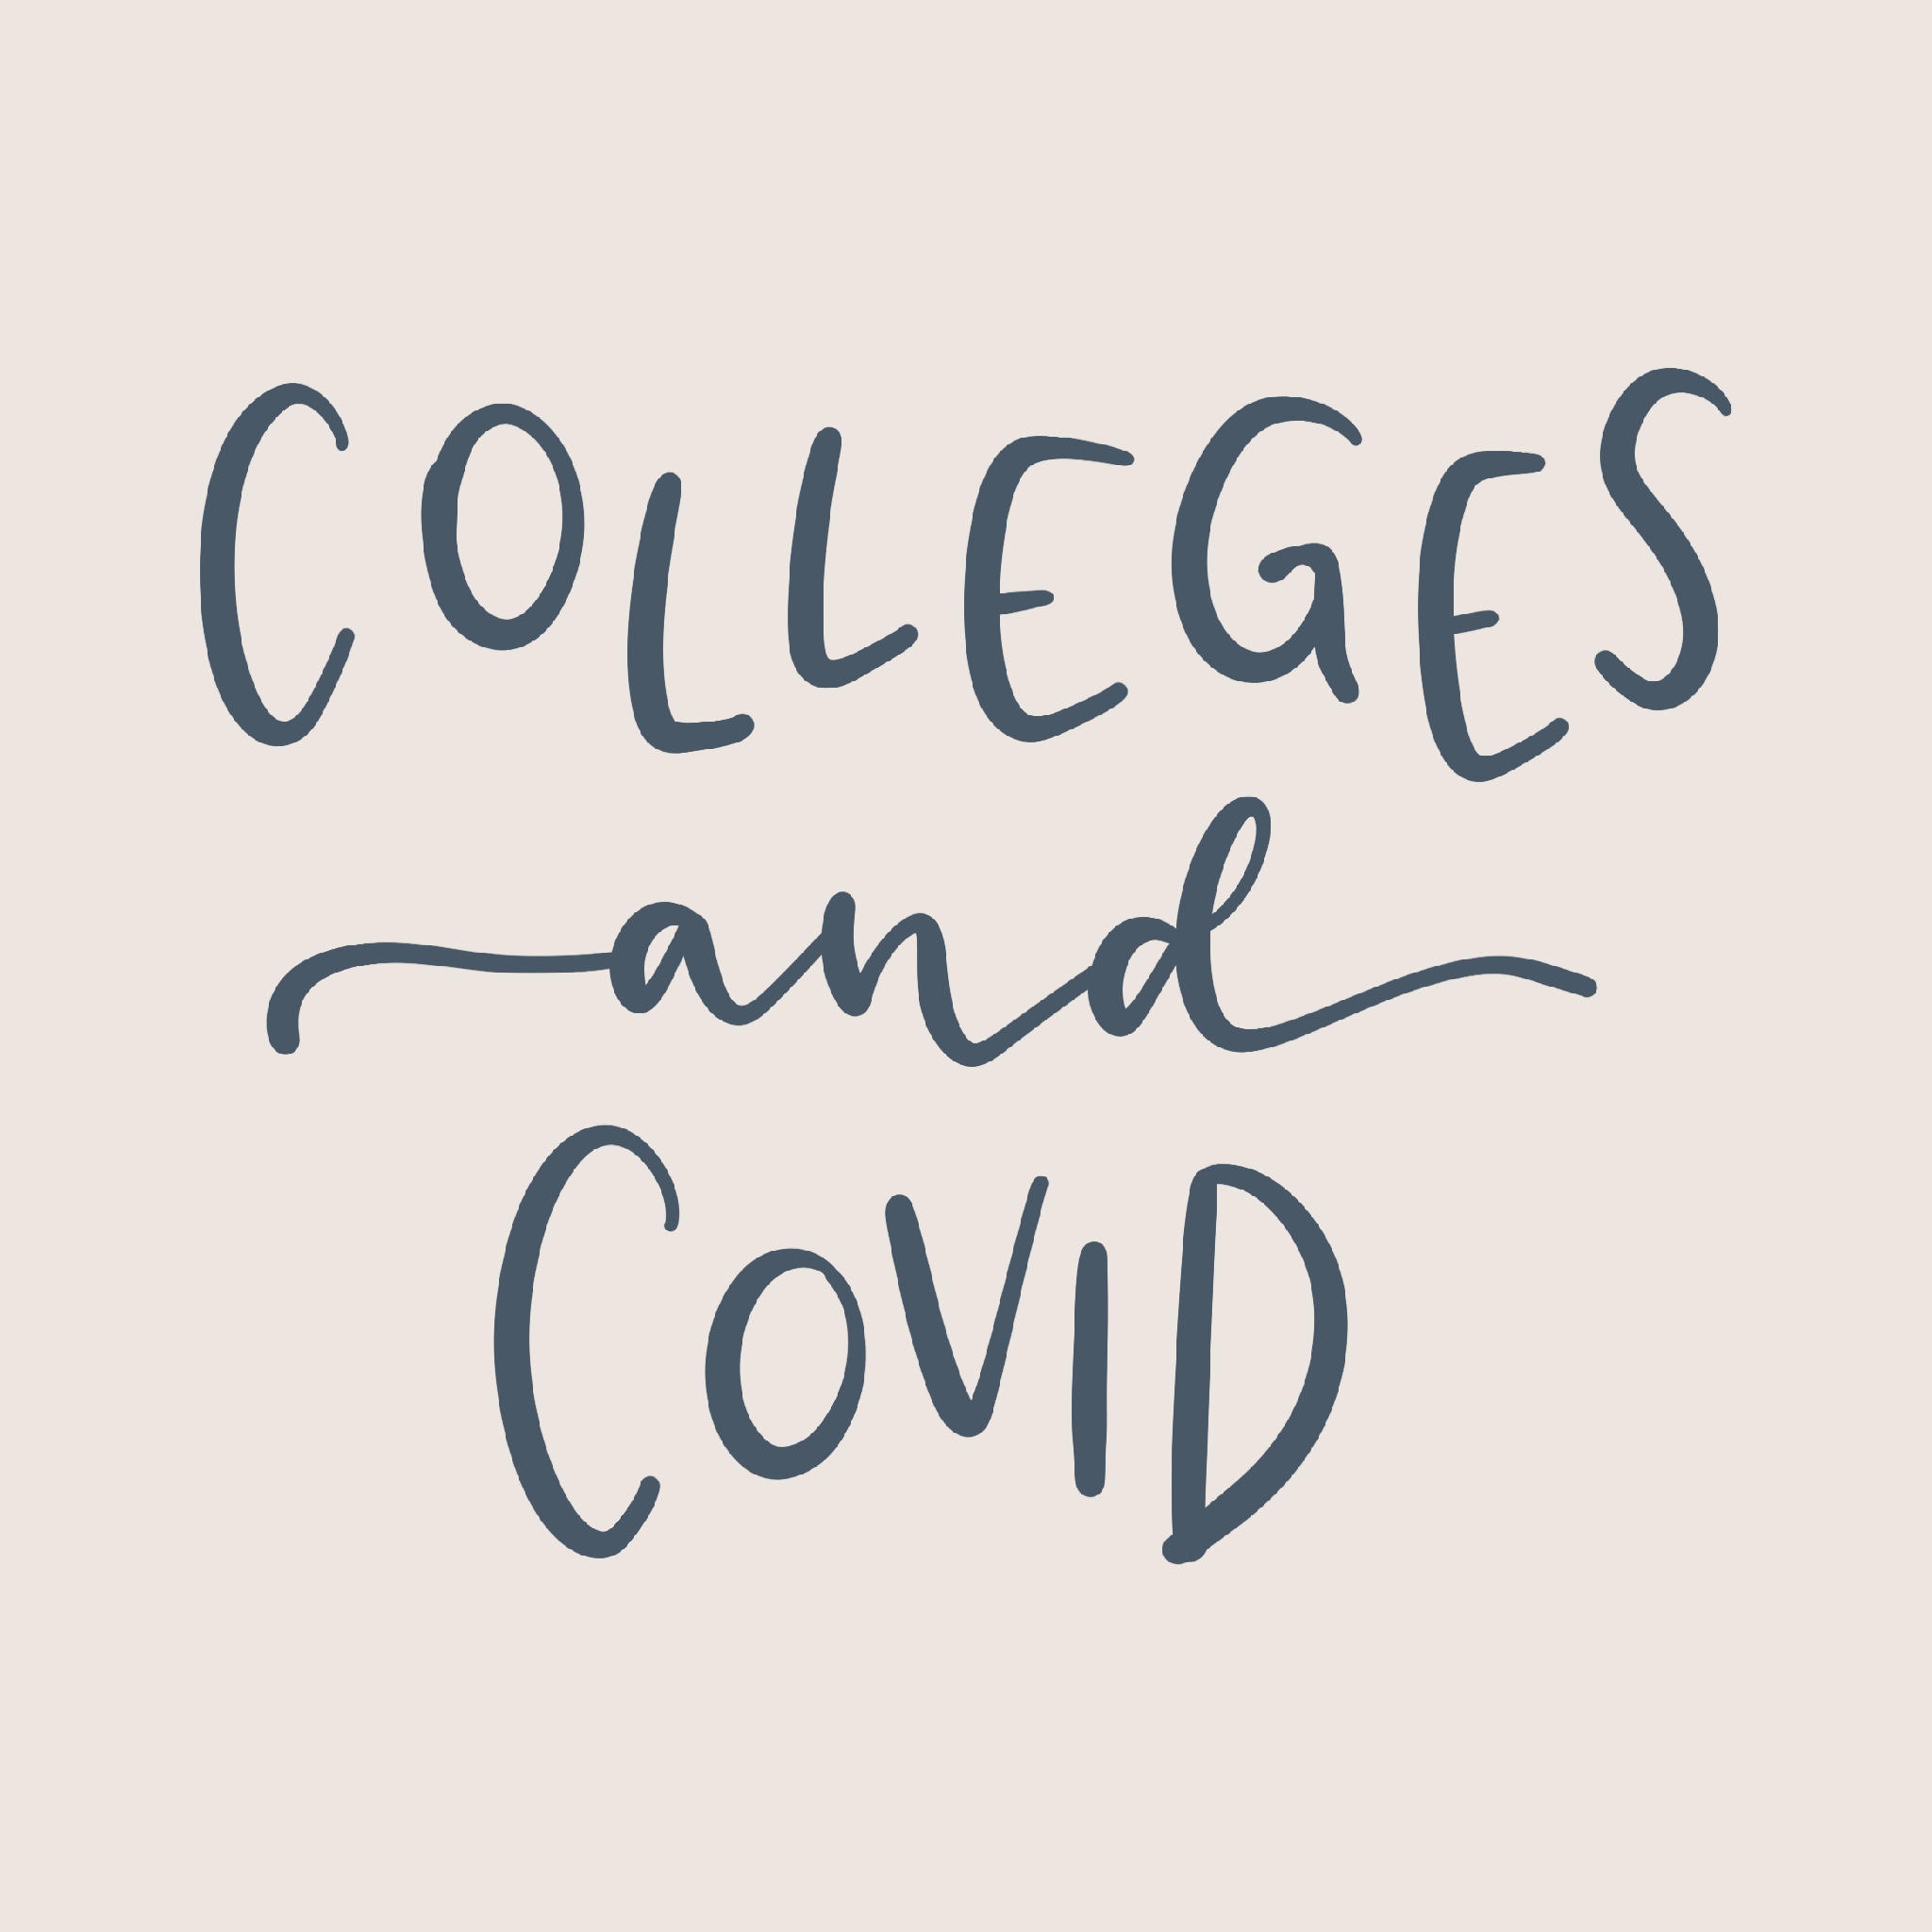 COLLEGES
and
COVID